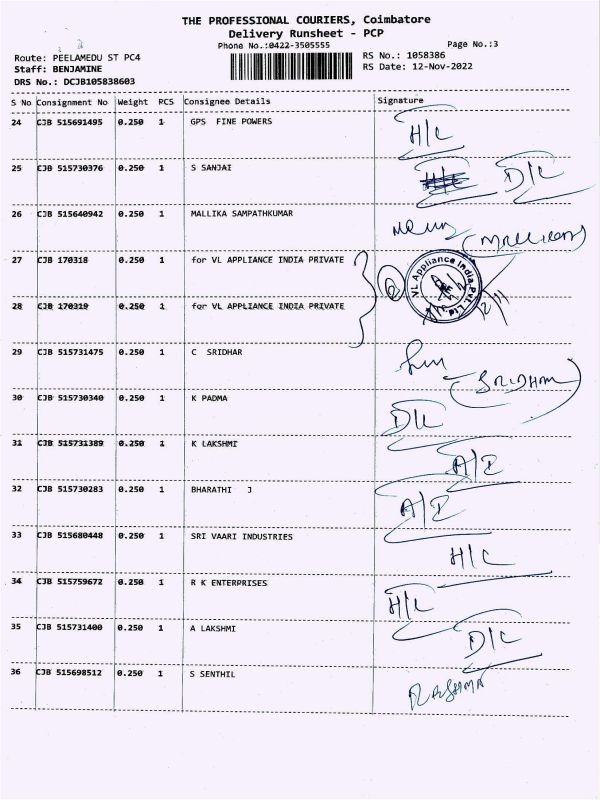 THE PROFESSIONAL COURIERS, Coimbatore
Delivery Runsheet - PCP
Phone No.:0422-3505555
Page No.:3
Route: PEELAMEDU ST PC4
RS No.: 1058386
Staff: BENJAMINE
RS Date: 12-Nov-2022
DRS No.: DCJB105838603
S No Consignment No Weight PCS Consignee Details Signature
24 CJB 515691495 0.250 1 GPS FINE POWERS H/C
25 CJB 515730376 0.250 1 S SANJAI H/C D/C
26 CJB 515640942 0.250 1 MALLIKA SAMPATHKUMAR
27 CJB 170318 0.250 1 for VL APPLIANCE INDIA PRIVATE
VL Appliance India Pvt. Ltd
28 CJB 170319 0.250 1 for VL APPLIANCE INDIA PRIVATE
29 CJB 515731475 0.250 1 C SRIDHAR
(SRIDHAR)
30 CJB 515730340 0.250 1 K PADMA D/L
31 CJB 515731389 0.250 1 K LAKSHMI A/E
32 CJB 515730283 0.250 1 BHARATHI J A/E
33 CJB 515680448 0.250 1 SRI VAARI INDUSTRIES H/C
34 CJB 515759672 0.250 1 R K ENTERPRISES H/L
35 CJB 515731400 0.250 1 A LAKSHMI D/C
36 CJB 515698512 0.250 1 S SENTHIL